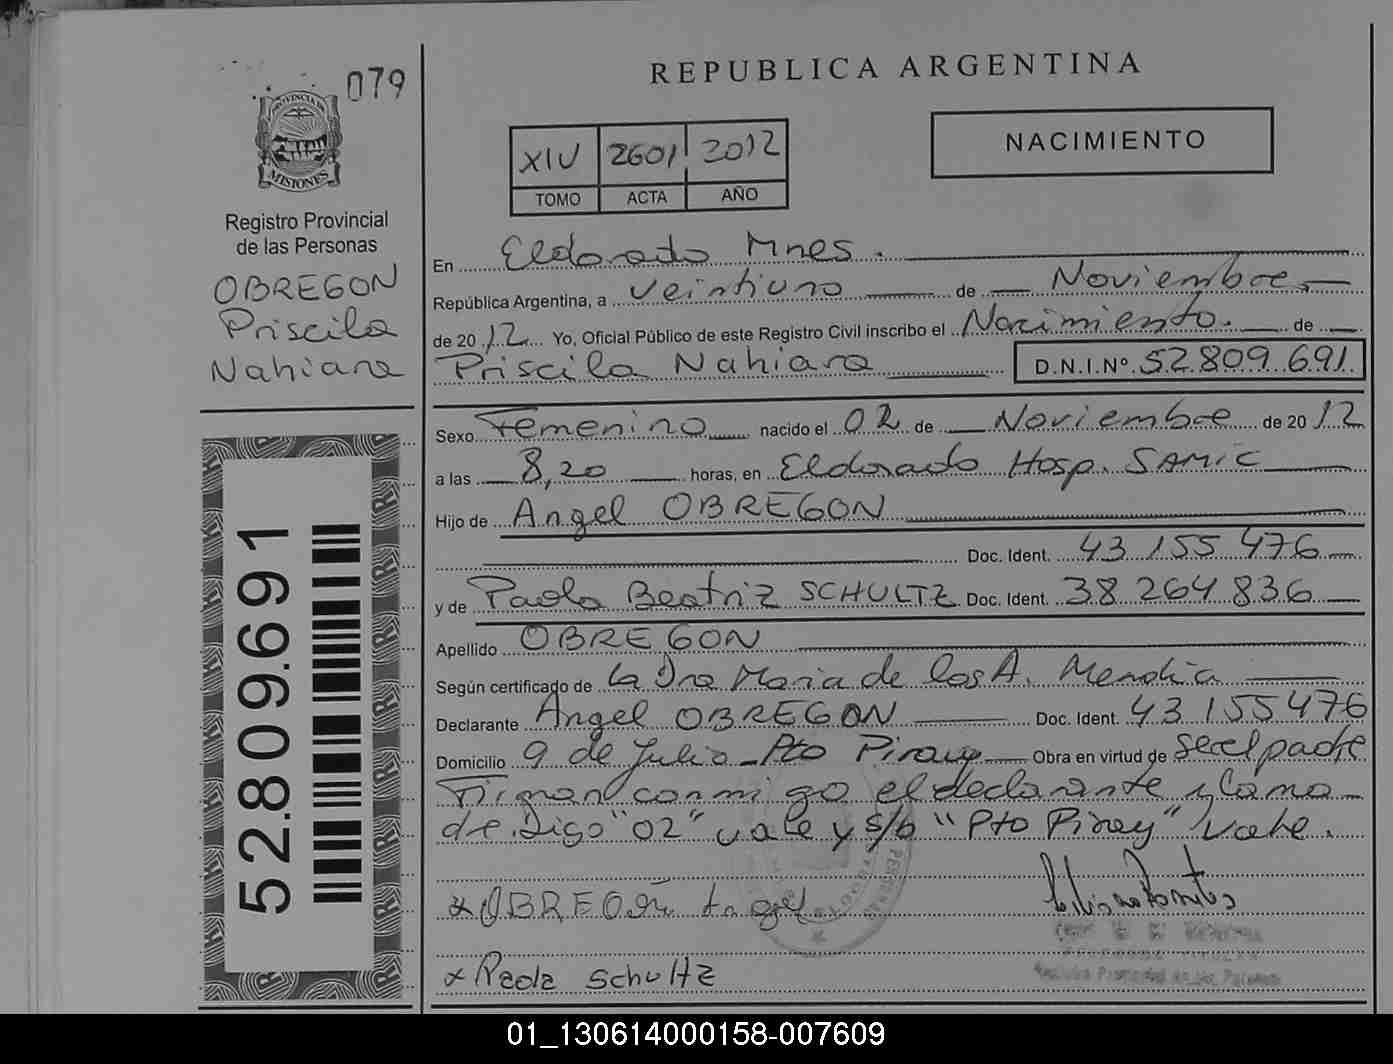 079
PROVINCIA DE
MISIONES
Registro Provincial
de las Personas
OBREGON
Priscila
Nahiara
52.809.691
REPUBLICA ARGENTINA
XIV 2601 2012
TOMO ACTA AÑO
NACIMIENTO
En Eldorado Mnes.
República Argentina, a veintiuno de Noviembre
de 2012 Yo, Oficial Público de este Registro Civil inscribo el Nacimiento. de
Priscila Nahiara D.N.I.Nº 52.809.691
Sexo Femenino nacido el 02 de Noviembre de 2012
a las 8,20 horas, en Eldorado Hosp. SAMIC
Hijo de Angel OBREGON
Doc. Ident. 43 155 476
y de Paola Beatriz SCHULTZ Doc. Ident. 38 264 836
Apellido OBREGON
Según certificado de la Dra Maria de los A. Mendia
Declarante Angel OBREGON Doc. Ident. 43 155476
Domicilio 9 de Julio - Pto Piray Obra en virtud de ser el padre
Firman conmigo el declarante y la ma-
dre. Digo "02" vale y s/b "Pto Piray" vale.
x OBREGON Angel
x Paola Schultz
01_130614000158-007609